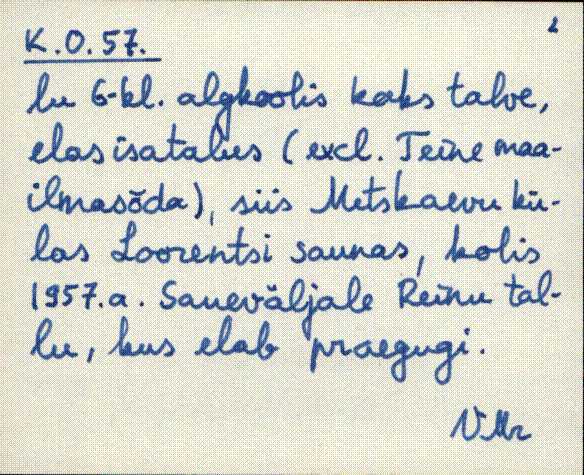 2
K.O.57.
lu 6-kl. algkoolis kaks talve,
elas isatalus (excl. Teine maa-
ilmasõda), siis Metskaevu kü-
las Loorentsi saunas, kolis
1957.a. Saueväljale Reinu tal-
lu, kus elab praegugi.
VMr